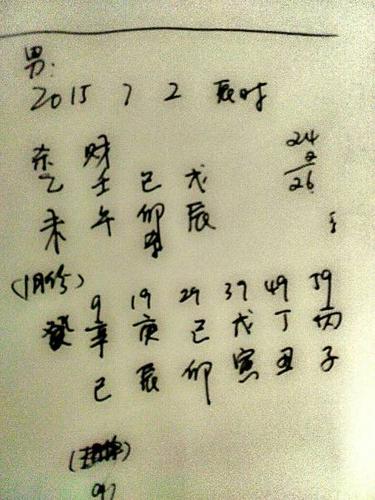 男:
2015 7 2 辰时
杀 财
乙 壬 己 戊
未 午 卯 辰
24
2
26
(1月份)
9 19 29 39 49 59
辛 庚 己 戊 丁 丙
巳 辰 卯 寅 丑 子